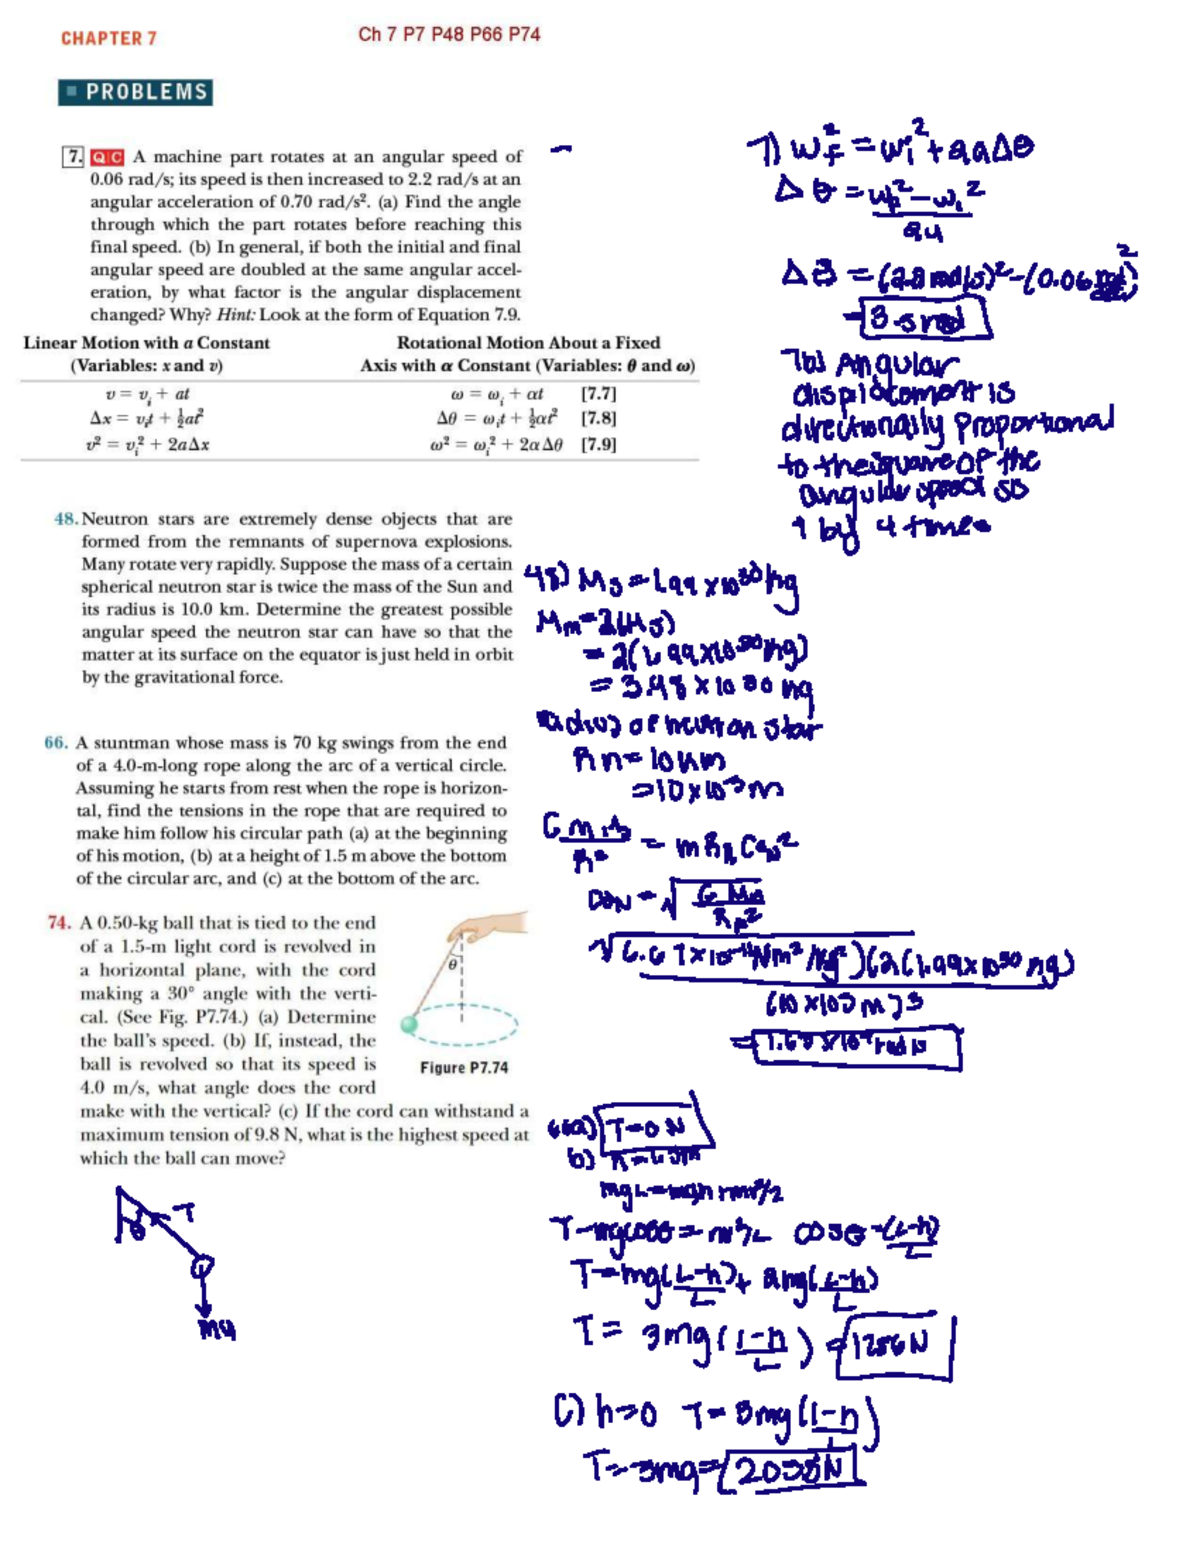 CHAPTER 7
Ch 7 P7 P48 P66 P74
PROBLEMS
7. Q|C A machine part rotates at an angular speed of
0.06 rad/s; its speed is then increased to 2.2 rad/s at an
angular acceleration of 0.70 rad/s². (a) Find the angle
through which the part rotates before reaching this
final speed. (b) In general, if both the initial and final
angular speed are doubled at the same angular accel-
eration, by what factor is the angular displacement
changed? Why? Hint: Look at the form of Equation 7.9.
Linear Motion with a Constant
(Variables: x and v)
Rotational Motion About a Fixed
Axis with α Constant (Variables: θ and ω)
v = vᵢ + at
ω = ωᵢ + αt [7.7]
Δx = vᵢt + ½at²
Δθ = ωᵢt + ½αt² [7.8]
v² = vᵢ² + 2aΔx
ω² = ωᵢ² + 2αΔθ [7.9]
48. Neutron stars are extremely dense objects that are
formed from the remnants of supernova explosions.
Many rotate very rapidly. Suppose the mass of a certain
spherical neutron star is twice the mass of the Sun and
its radius is 10.0 km. Determine the greatest possible
angular speed the neutron star can have so that the
matter at its surface on the equator is just held in orbit
by the gravitational force.
66. A stuntman whose mass is 70 kg swings from the end
of a 4.0-m-long rope along the arc of a vertical circle.
Assuming he starts from rest when the rope is horizon-
tal, find the tensions in the rope that are required to
make him follow his circular path (a) at the beginning
of his motion, (b) at a height of 1.5 m above the bottom
of the circular arc, and (c) at the bottom of the arc.
74. A 0.50-kg ball that is tied to the end
of a 1.5-m light cord is revolved in
a horizontal plane, with the cord
making a 30° angle with the verti-
cal. (See Fig. P7.74.) (a) Determine
the ball's speed. (b) If, instead, the
ball is revolved so that its speed is
4.0 m/s, what angle does the cord
make with the vertical? (c) If the cord can withstand a
maximum tension of 9.8 N, what is the highest speed at
which the ball can move?
θ
Figure P7.74
θ T
mg
7) ωf² = ωi² + 2aΔθ
Δθ = ωf² - ωi²
2a
= 3.5 rad
7b) Angular
displacement is
directionally proportional
to the square of the
angular speed so
↑ by 4 times
48) Ms = 1.99 x 10³⁰ kg
= 2(1.99x10³⁰ kg)
= 3.98 x 10 30 kg
radius of neutron star
Rn = 10 km
= 10 x 10³ m
(10 x 10³ m)3
66a) T = 0 N
b)
T - mgcosθ = mv²/L cosθ = (L-h)
L
T = mg(L-h) + 2mg(L-h)
L L
T = 3mg(L-h) =
L
c) h=0 T = 3mg(L-h)
L
T = 3mg = 2058N